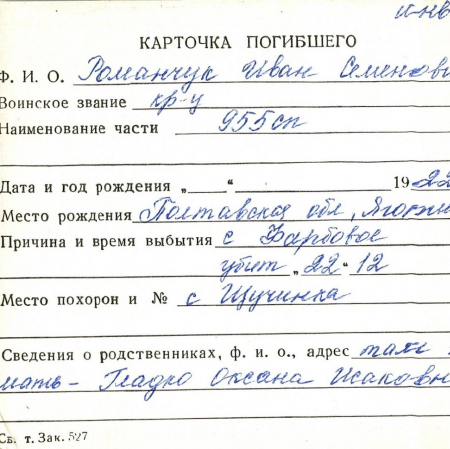 инв
КАРТОЧКА ПОГИБШЕГО
Ф. И. О. Романчук Иван Семенови
Воинское звание кр-ц
Наименование части 955сп
Дата и год рождения „ “ 1922
Место рождения Полтавская обл,
Причина и время выбытия с
убит „22“ 12
Место похорон и № с Щучинка
Сведения о родственниках, ф. и о., адрес там
мать – Гладко Оксана Исаковн
Сб. т. Зак. 527